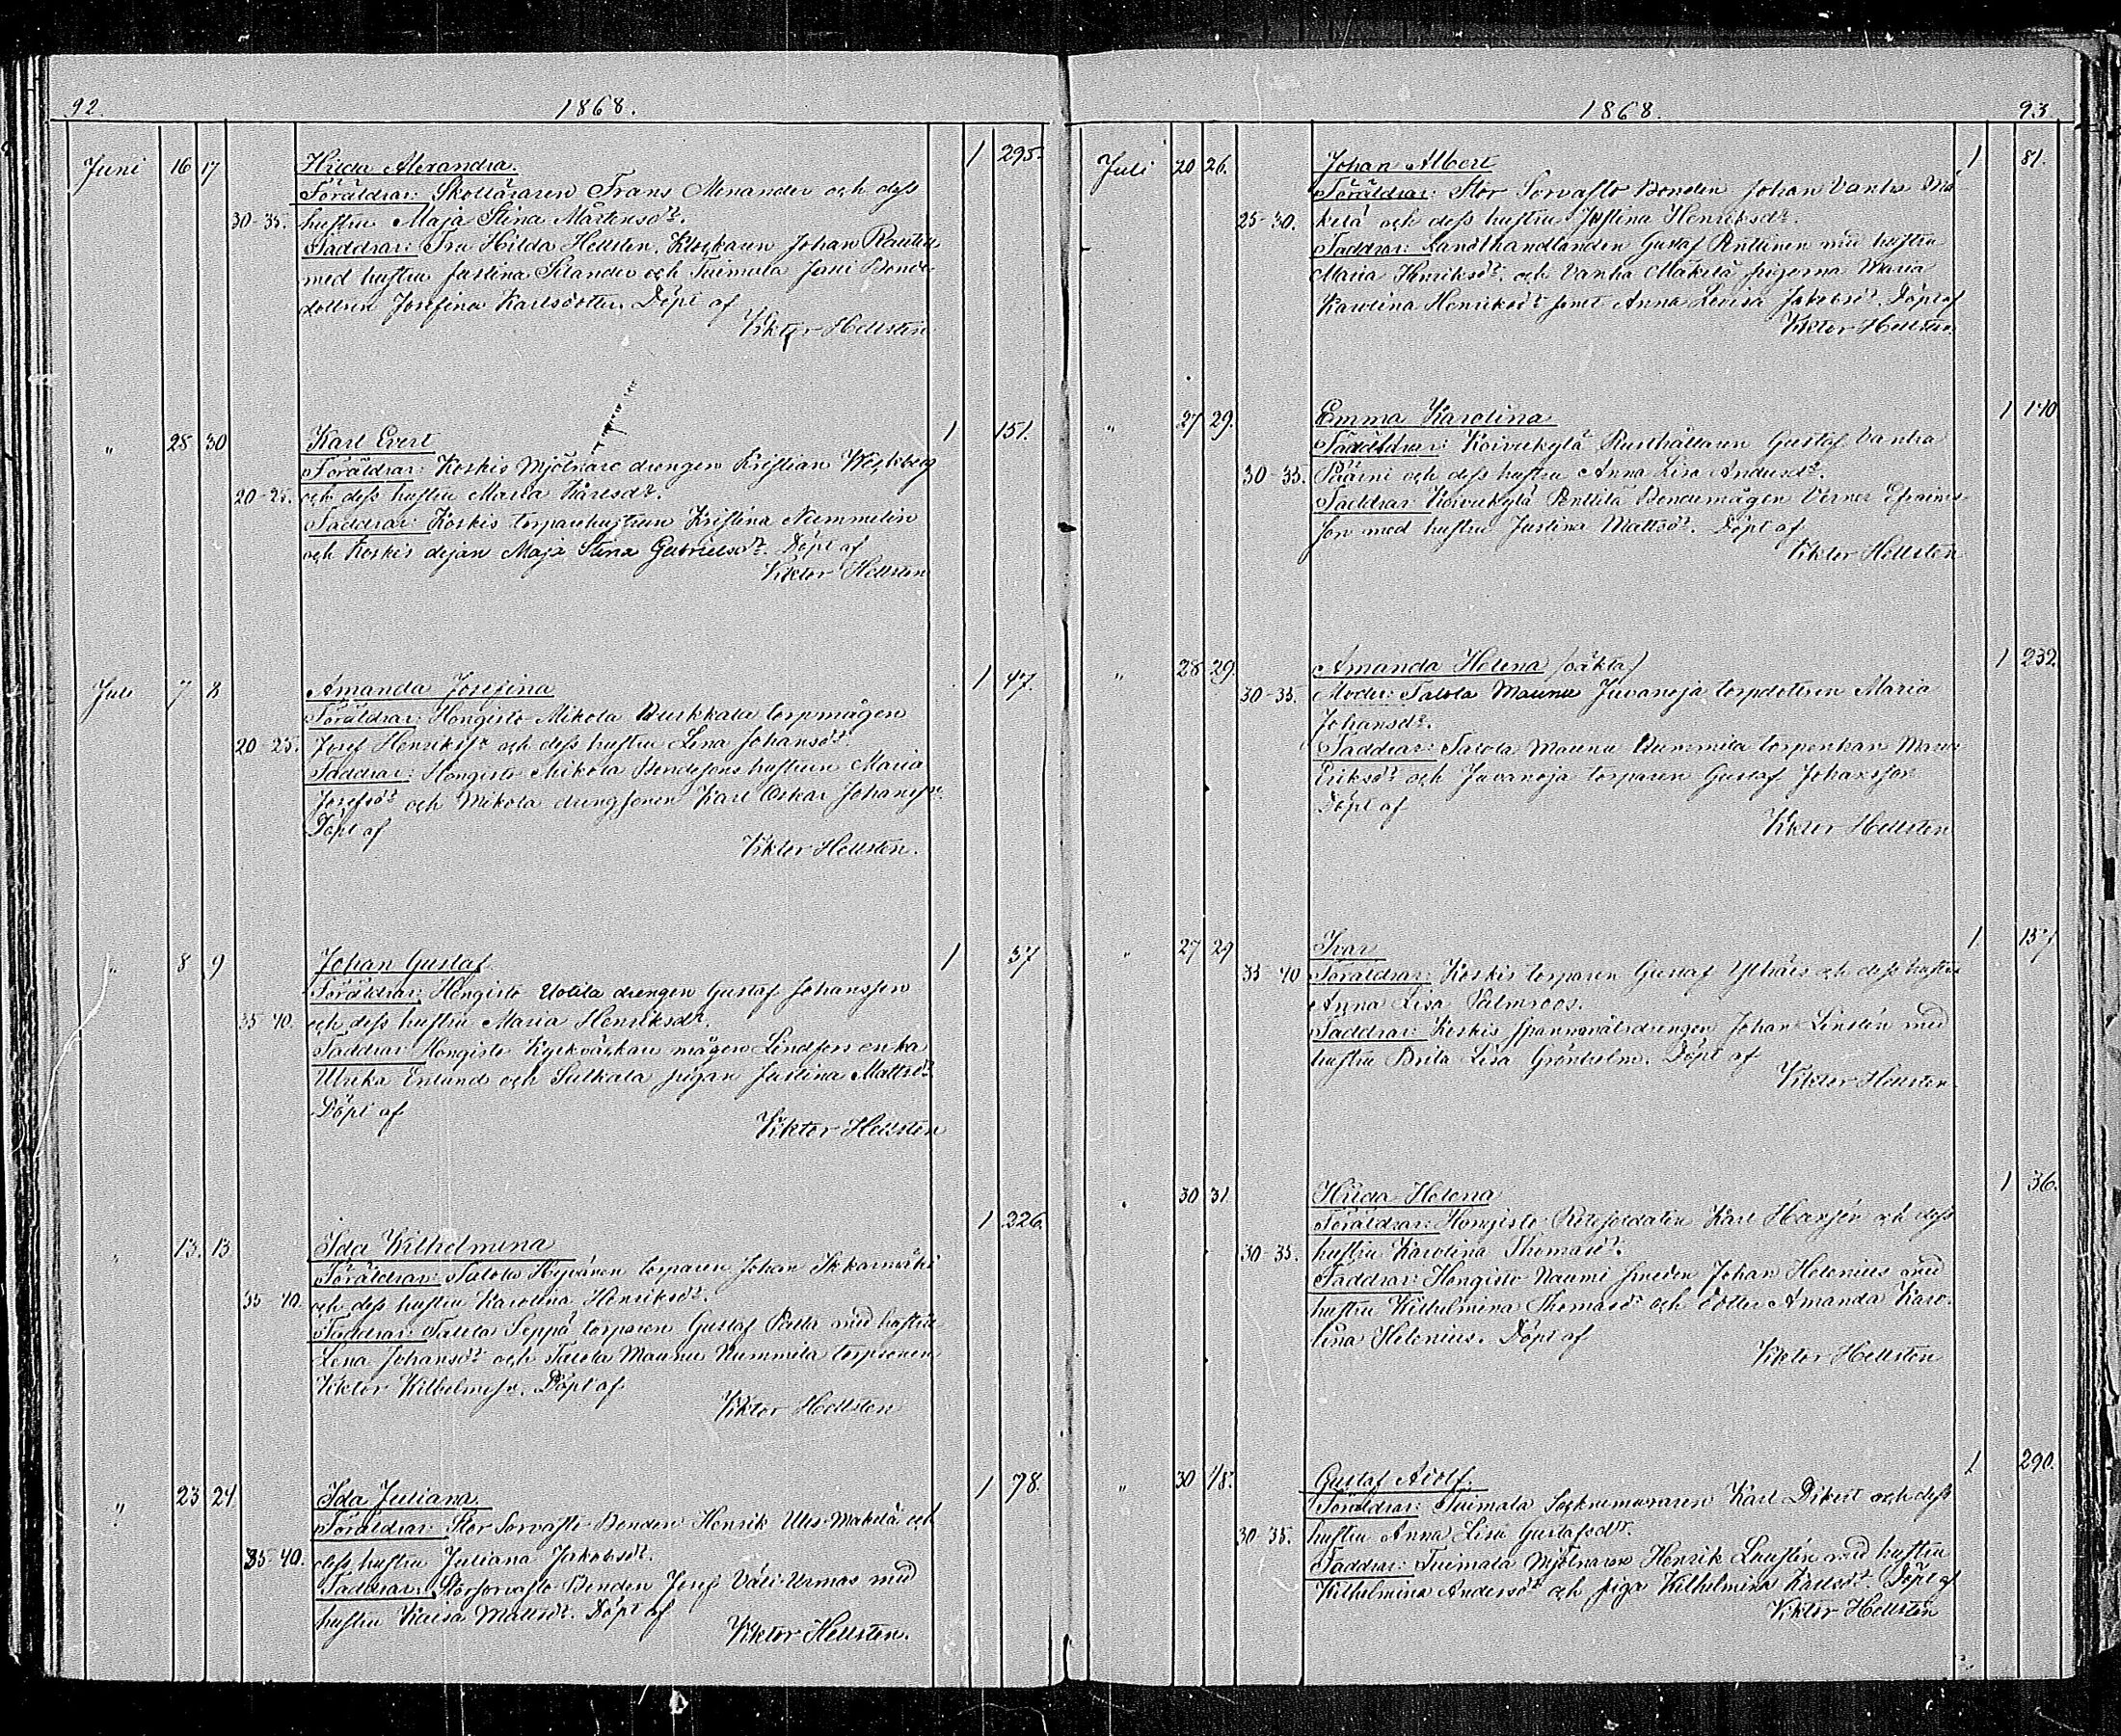 92. 1868.
Juni 16 17 Hilda Alexandra. 1 295.
Föräldrar: Skolläraren Frans Menander och dess
30-35. hustru Maja Stina Mårtensdr.
Faddrar: Fru Hilda Hellsten, Klockaren Johan
med hustru Justina Silander och Tuimala Jussi Bonde-
dottren Josefina Karlsdotter. Döpt af
Viktor Hellsten
" 28 30 Karl Evert 1 151.
Föräldrar: Koskis Mjölnare drengen Kristian
20-25. och dess hustru Maria Karlsdr.
Faddrar: Koskis torparehustrun Kristina Nummelin
och Koskis dejan Maja Stina Gabrielsdr. Döpt af
Viktor Hellsten
Juli 7 8 Amanda Josefina 1 47.
Föräldrar: Hongisto Mikola torpmågen
20-25. Josef Henrikss. och dess hustru Lena Johansdr.
Faddrar: Hongisto Mikola Bondesons hustrun Maria
Josefsdr och Mikola drengsonen Karl Oskar Johanss.
Döpt af
Viktor Hellsten.
" 8 9 Johan Gustaf 1 37
Föräldrar: Hongisto Uotila drengen Gustaf Johansson
35-40. och dess hustru Maria Henriksdr.
Faddrar: Hongisto mågen enka
Ulrika Enlund och pigan Justina Mattsdr
Döpt af
Viktor Hellsten
" 13. 13 Ida Wilhelmina 1 226.
Föräldrar: Talola Hyvönen torparen Johan
35-40. och dess hustru Karolina Henriksdr.
Faddrar: Talola Seppä torparen Gustaf med hustru
Lena Johansdr och Talola Maunu Nummila torpsonen
Viktor Wilhelmss. Döpt af
Viktor Hellsten
" 23 24 Ida Juliana 1 78.
Föräldrar: Stor Sorvasto Bonden Henrik Mäkelä och
35-40. dess hustru Juliana Jakobsdr.
Faddrar: Storsorvasto Bonden Josef Väli-Urmas med
hustru Kaisa Mattsdr. Döpt af
Viktor Hellsten.
1868. 93
Juli 20 26. Johan Albert 1 81.
Föräldrar: Stor Sorvasto Bonden Johan Vanha Mä-
25-30. kelä och dess hustru Justina Henriksdr.
Faddrar: Landthandlanden Gustaf Anttinen med hustru
Maria Henriksdr. och Vanha Mäkelä pigorna Maria
Karolina Henriksdr samt Anna Lovisa Jakobsdr. Döpt af
Viktor Hellsten.
" 27 29. Emma Karolina 1 170
Föräldrar: Koivukylä Rusthållaren Gustaf Vanha
30-35. Päärni och dess hustru Anna Lisa Andersdr.
Faddrar: Koivukylä Anttila Bondemågen Verner Efraims-
son med hustru Justina Mattsdr. Döpt af
Viktor Hellsten
" 28 29. Amanda Helena (oäkta) 1 232
30-35. Moder: Talola Maunu Juvanoja torpdottren Maria
Johansdr.
Faddrar: Talola Maunu Nummila torpenkan Maria
Eriksdr och Juvanoja torparen Gustaf Johansson
Döpt af
Viktor Hellsten
" 27 29 Ivar 1. 157
35-40 Föräldrar: Koskis torparen Gustaf och dess hustru
Anna Lisa Palmroos.
Faddrar: Koskis drengen Johan Lindén med
hustru Brita Lisa Grönholm. Döpt af
Viktor Hellsten
" 30 31 Hilda Helena 1 36.
Föräldrar: Hongisto Rotesoldaten Karl Hansén och dess
30-35. hustru Karolina Thomasdr.
Faddrar: Hongisto Naumi smeden Johan Helenius med
hustru Wilhelmina Thomasdr och dotter Amanda Karo-
lina Helenius. Döpt af
Viktor Hellsten
" 30 1/8. Gustaf Adolf. 1 290.
Föräldrar: Tuimala Sockenmuraren Karl Dikert och dess
30-35. hustru Anna Lisa Gustafsdr.
Faddrar: Tuimala Mjölnaren Henrik med hustru
Wilhelmina Andersdr och piga Wilhelmina Karlsdr. Döpt af
Viktor Hellsten